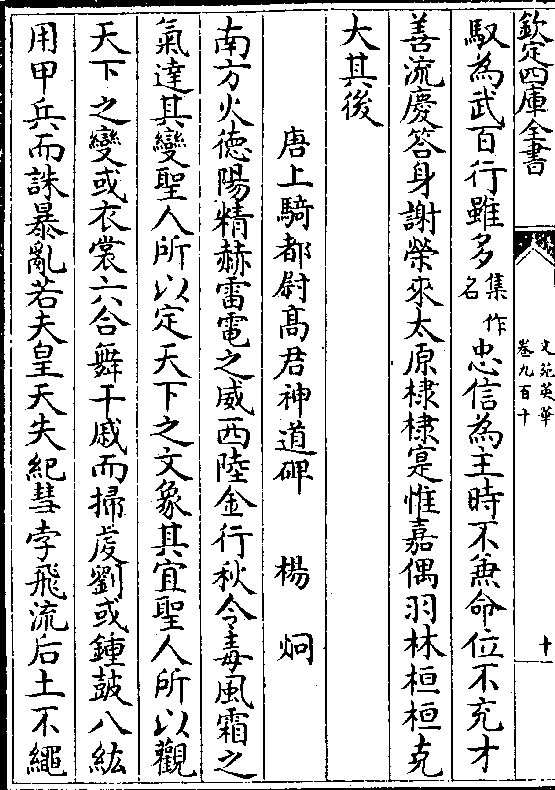 欽定四庫全書
文苑英華
卷九百十
十
馭為武百行雖多集作名忠信為主時不兼命位不充才
善流慶答身謝榮來太原棣棣寔惟嘉偶羽林桓桓克
大其後
唐上騎都尉高君神道碑　楊炯
南方火德陽精赫雷電之威西陸金行秋令毒風霜之
氣達其變聖人所以定天下之文象其宜聖人所以觀
天下之變或衣裳六合舞干戚而掃虔劉或鍾鼓八紘
用甲兵而誅暴亂若夫皇天失紀彗孛飛流后土不繩